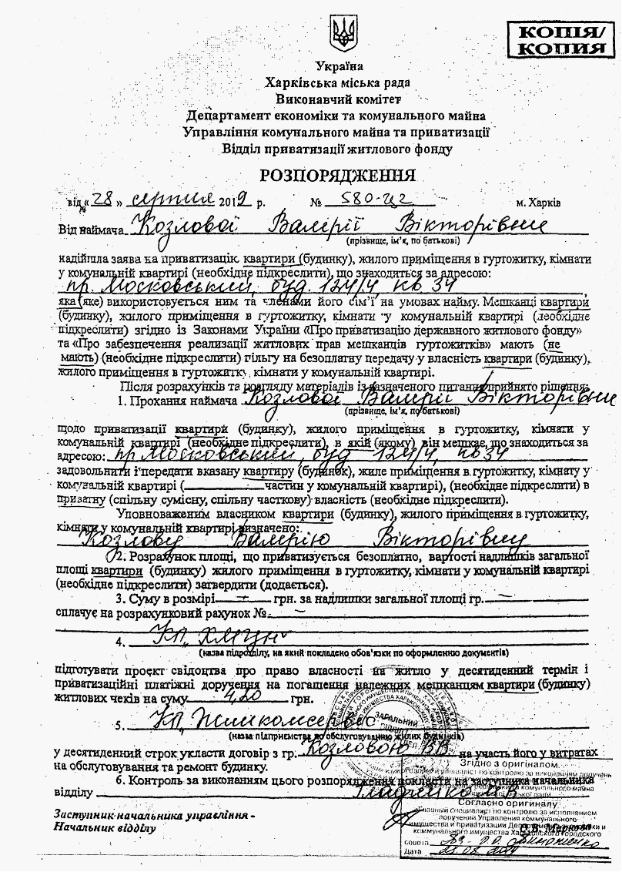 КОПІЯ/
КОПИЯ
Україна
Харківська міська рада
Виконавчий комітет
Департамент економіки та комунального майна
Управління комунального майна та приватизації
Відділ приватизації житлового фонду
РОЗПОРЯДЖЕННЯ
від « 28 » серпня 2019 р. № 580-ц2 м. Харків
Від наймача Козлової Валерії Вікторівни
(прізвище, ім'я, по батькові)
надійшла заява на приватизацію квартири (будинку), жилого приміщення в гуртожитку, кімнати
у комунальній квартирі (необхідне підкреслити), що знаходиться за адресою:
пр. Московський, буд 124/4 кв 34
яка (яке) використовується ним та членами його сім'ї на умовах найму. Мешканці квартири
(будинку), жилого приміщення в гуртожитку, кімнати у комунальній квартирі (необхідне
підкреслити) згідно із Законами України «Про приватизацію державного житлового фонду»
та «Про забезпечення реалізації житлових прав мешканців гуртожитків» мають (не
мають) (необхідне підкреслити) пільгу на безоплатну передачу у власність квартири (будинку),
жилого приміщення в гуртожитку, кімнати у комунальній квартирі.
Після розрахунків та розгляду матеріалів із зазначеного питання прийнято рішення:
1. Прохання наймача Козлової Валерії Вікторівни
(прізвище, ім'я, по батькові)
щодо приватизації квартири (будинку), жилого приміщення в гуртожитку, кімнати у
комунальній квартирі (необхідне підкреслити), в якій (якому) він мешкає, що знаходиться за
адресою: пр Московський, буд 124/4, кв 34
задовольнити і передати вказану квартиру (будинок), жиле приміщення в гуртожитку, кімнату у
комунальній квартирі ( частин у комунальній квартирі), (необхідне підкреслити) в
приватну (спільну сумісну, спільну часткову) власність (необхідне підкреслити).
Уповноваженим власником квартири (будинку), жилого приміщення в гуртожитку,
кімнати у комунальній квартирі визначено:
Козлову Валерію Вікторівну
2. Розрахунок площі, що приватизується безоплатно, вартості надлишків загальної
площі квартири (будинку) жилого приміщення в гуртожитку, кімнати у комунальній квартирі
(необхідне підкреслити) затвердити (додається).
3. Суму в розмірі — грн. за надлишки загальної площі гр. —
сплачує на розрахунковий рахунок № —
4. КП
(назва підрозділу, на який покладено обов'язки по оформленню документів)
підготувати проєкт свідоцтва про право власності на житло у десятиденний термін і
приватизаційні платіжні доручення на погашення належних мешканцям квартири (будинку)
житлових чеків на суму 4,20 грн.
5. КП „Жилкомсервіс"
(назва підприємства по обслуговуванню жилих будинків)
у десятиденний строк укласти договір з гр. Козловою В.В. на участь його у витратах
на обслуговування та ремонт будинку.
6. Контроль за виконанням цього розпорядження покласти на заступника начальника
відділу
Заступник начальника управління -
Начальник відділу
Згідно з оригіналом
Согласно оригиналу
Дата